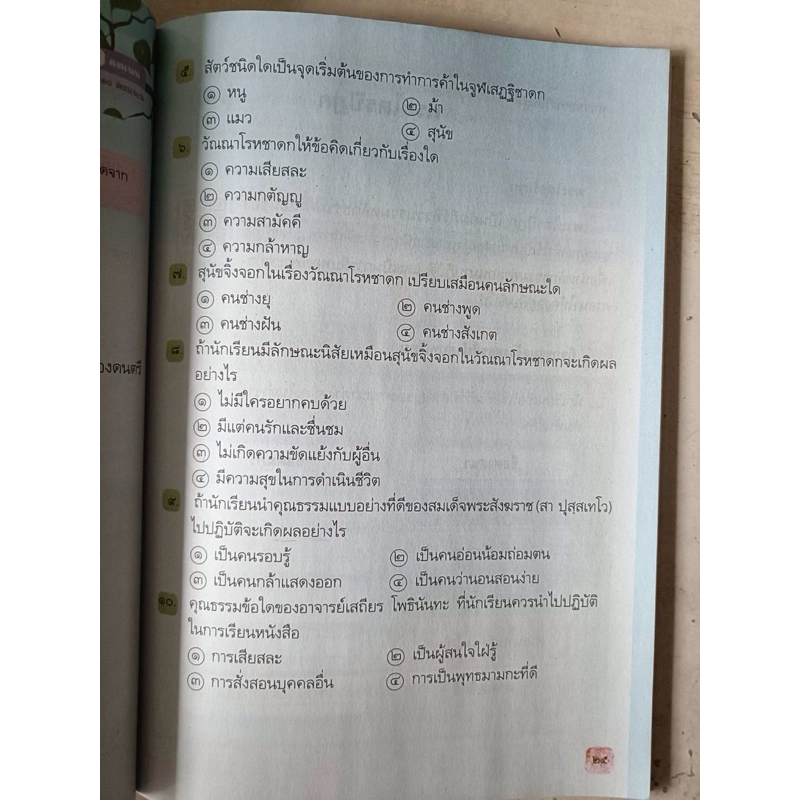 ดจาก
องดนตรี
๕. สัตว์ชนิดใดเป็นจุดเริ่มต้นของการทำการค้าในจูฬเสฏฐิชาดก
๑ หนู ๒ ม้า
๓ แมว ๔ สุนัข
๖. วัณณาโรหชาดกให้ข้อคิดเกี่ยวกับเรื่องใด
๑ ความเสียสละ
๒ ความกตัญญู
๓ ความสามัคคี
๔ ความกล้าหาญ
๗. สุนัขจิ้งจอกในเรื่องวัณณาโรหชาดก เปรียบเสมือนคนลักษณะใด
๑ คนช่างยุ ๒ คนช่างพูด
๓ คนช่างฝัน ๔ คนช่างสังเกต
๘. ถ้านักเรียนมีลักษณะนิสัยเหมือนสุนัขจิ้งจอกในวัณณาโรหชาดกจะเกิดผล
อย่างไร
๑ ไม่มีใครอยากคบด้วย
๒ มีแต่คนรักและชื่นชม
๓ ไม่เกิดความขัดแย้งกับผู้อื่น
๔ มีความสุขในการดำเนินชีวิต
๙. ถ้านักเรียนนำคุณธรรมแบบอย่างที่ดีของสมเด็จพระสังฆราช (สา ปุสฺสเทโว)
ไปปฏิบัติจะเกิดผลอย่างไร
๑ เป็นคนรอบรู้ ๒ เป็นคนอ่อนน้อมถ่อมตน
๓ เป็นคนกล้าแสดงออก ๔ เป็นคนว่านอนสอนง่าย
๑๐. คุณธรรมข้อใดของอาจารย์เสถียร โพธินันทะ ที่นักเรียนควรนำไปปฏิบัติ
ในการเรียนหนังสือ
๑ การเสียสละ ๒ เป็นผู้สนใจใฝ่รู้
๓ การสั่งสอนบุคคลอื่น ๔ การเป็นพุทธมามกะที่ดี
๒๕